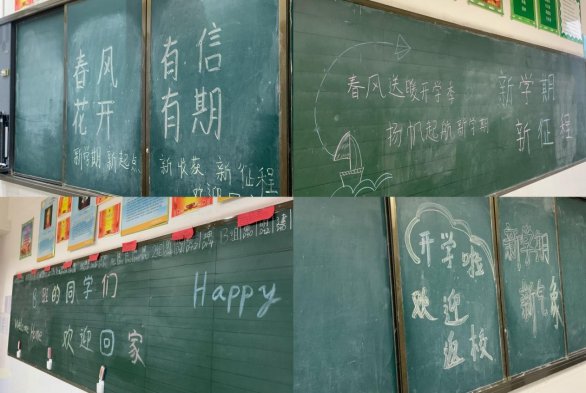 春风
花开
有信
有期
新学期 新起点
新收获 新征程
欢迎
春风送暖开学季
扬帆起航新学期
新学期
新征程
班的同学们
Welcome Home 欢迎回家
Happy
开学啦
欢迎
返校
新学期
新气象